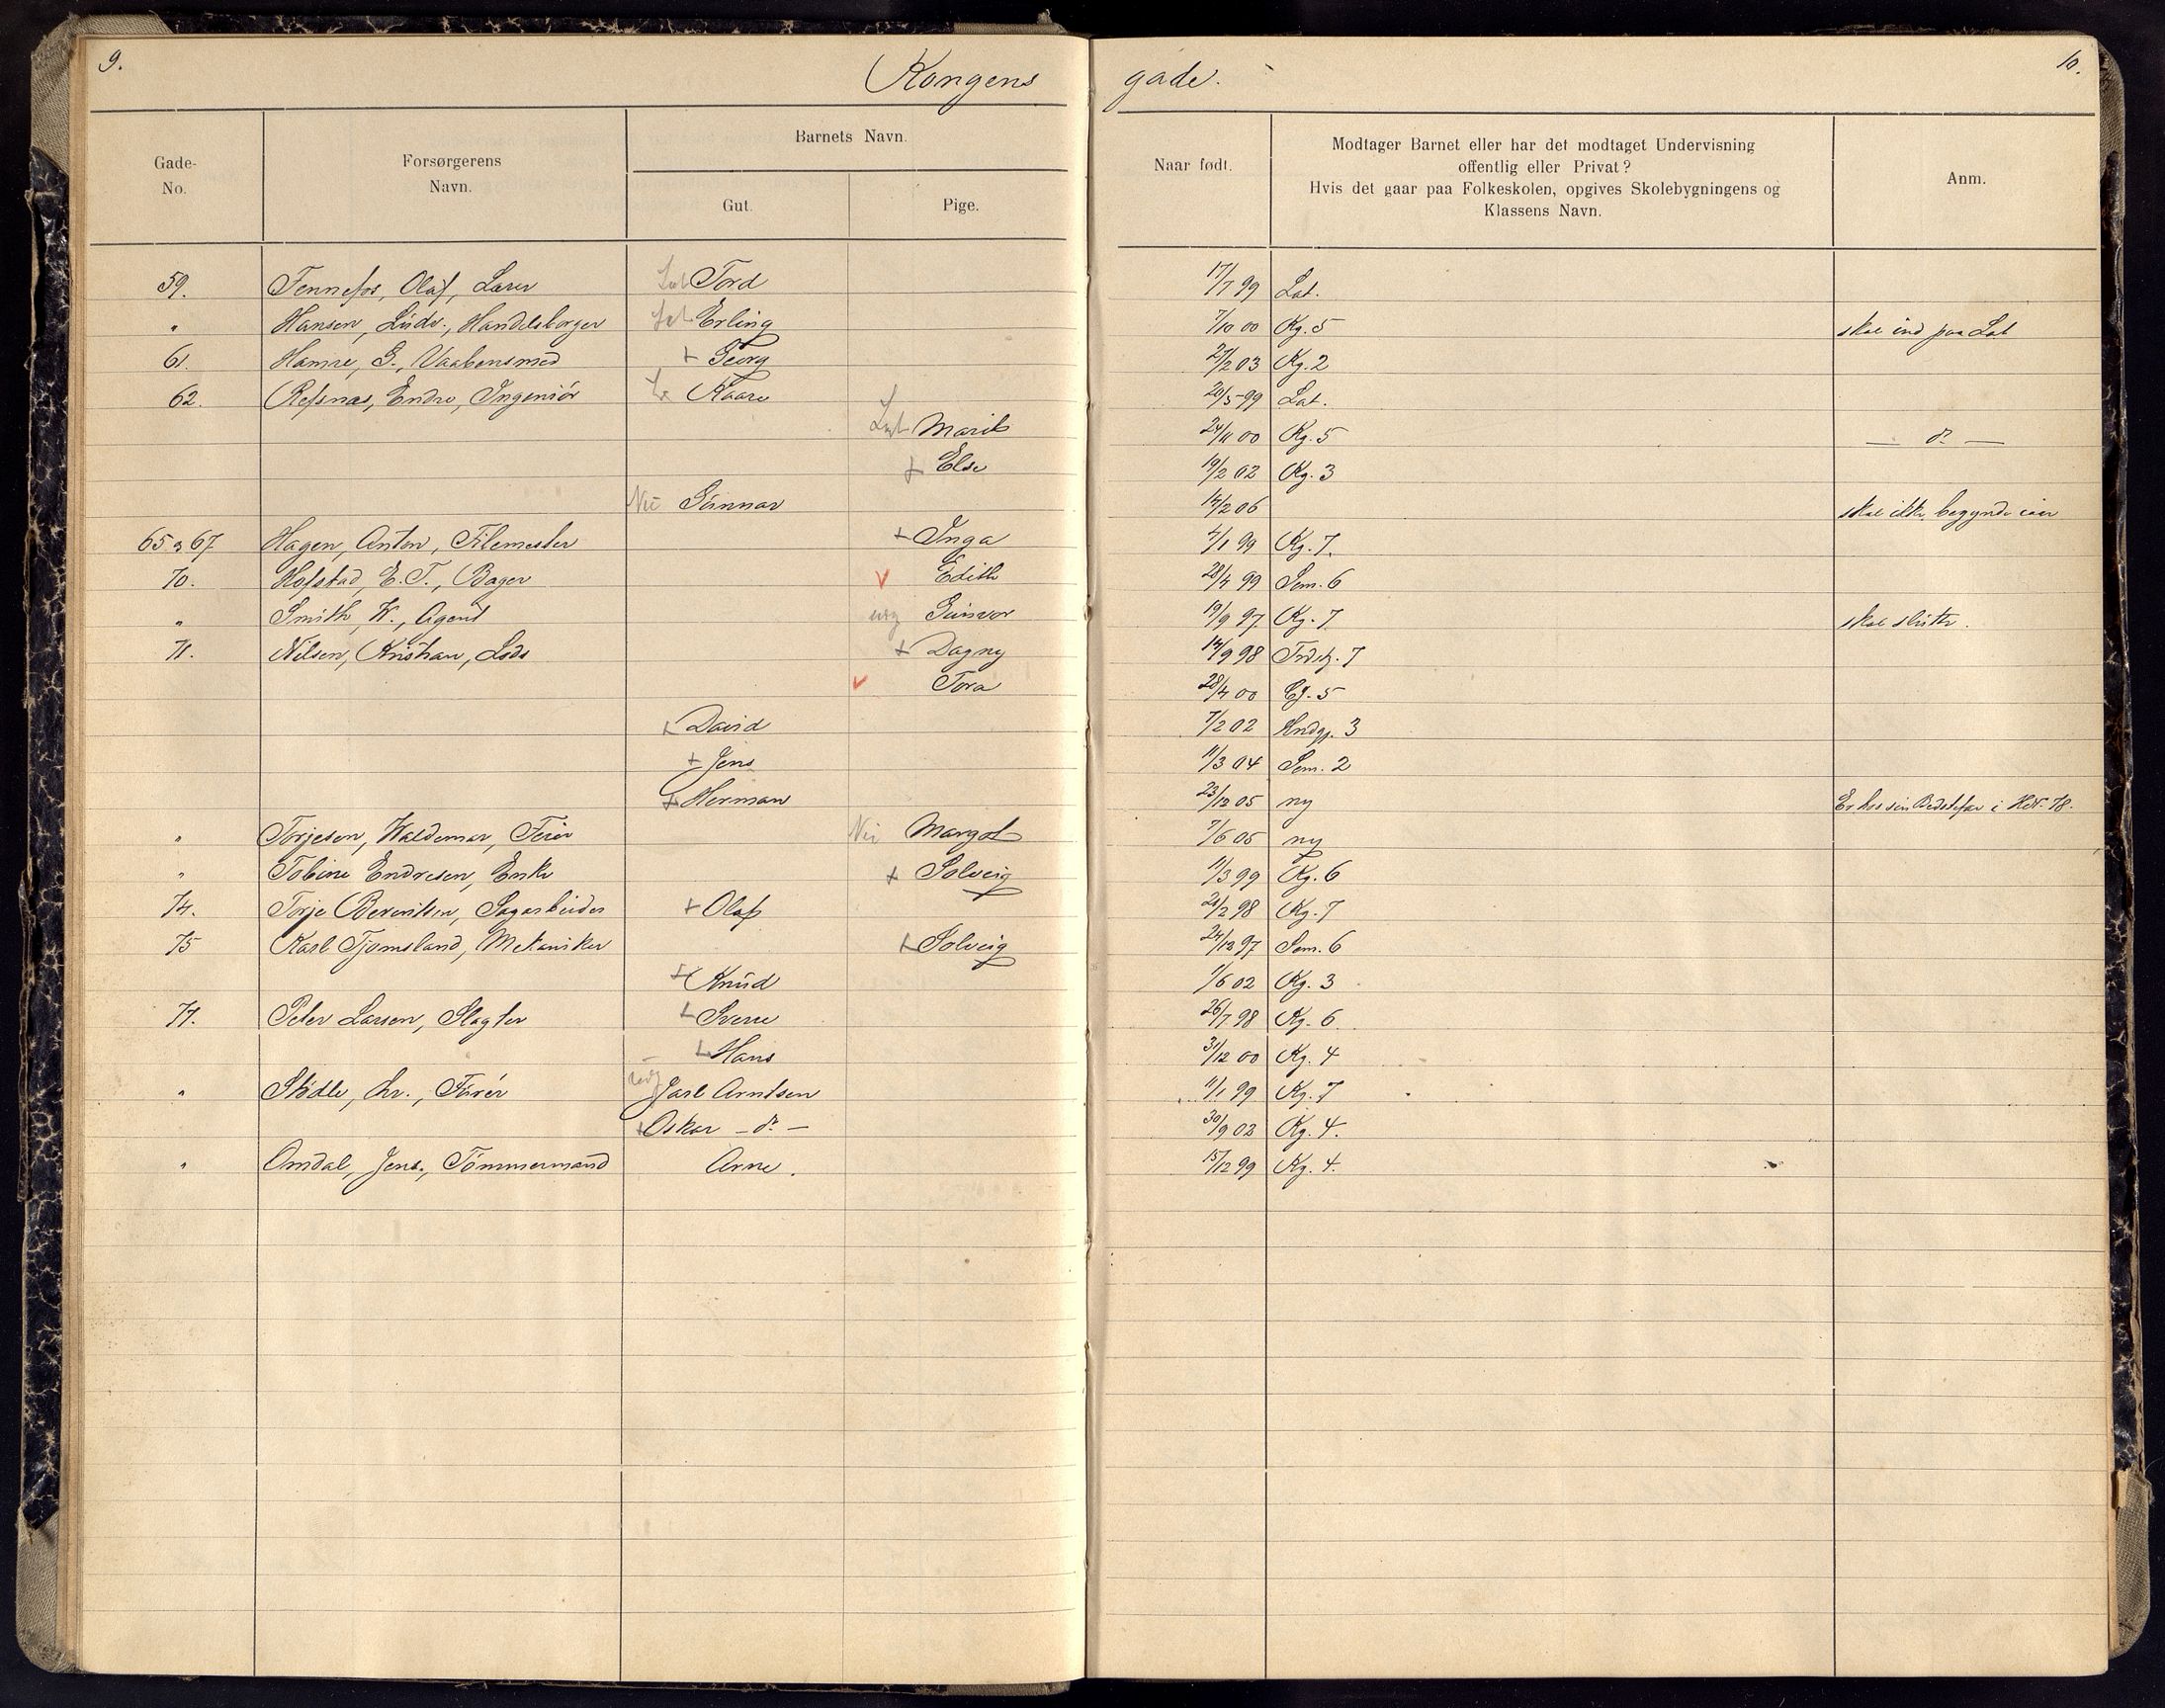 9.
Kongens gade.
10.
Gade-No.
Forsørgerens Navn.
Barnets Navn.
Gut.
Pige.
Naar født.
Modtager Barnet eller har det modtaget Undervisning
offentlig eller Privat?
Hvis det gaar paa Folkeskolen, opgives Skolebygningens og
Klassens Navn.
Anm.
59. Tennefos, Olaf, Lærer Lat Tord 17/7 99 Lat.
" Hansen, Ludv., Handelsborger Lat Erling 7/10 00 Kg. 5 skal ind paa Lat
61. Hamre, G., Vaabensmed + Georg 27/2 03 Kg. 2
62. Refsnæs, Endre, Ingeniør Kaare 20/5 99 Lat.
Lat Marit 24/11 00 Kg. 5 — do —
+ Else 19/2 02 Kg. 3
Nei Gunnar 14/2 06 skal ikke begynde iaar
65 & 67 Hagen, Anton, Filemester + Inga 4/1 99 Kg. 7.
70. Hofstad, E. T., Bager v Edith 28/4 99 Sem. 6
" Smith, W., Agent Gunvor 19/9 97 Kg. 7 skal slutte.
71. Nilsen, Kristian, Lods + Dagny 14/9 98 7
v Tora 28/4 00 5
+ David 7/2 02 3
+ Jens 11/3 04 Sem. 2
+ Herman 23/12 05 ny Er hos sin Bedstefar i 78.
" Torjesen, Waldemar, Feier Nei Margot 7/6 05 ny
" Tobine Endresen, Enke + Solveig 11/3 99 Kg. 6
74. Torje Berentsen, Sagarbeider + Olaf 20/2 98 Kg. 7
75 Karl Tjomsland, Mekaniker + Solveig 24/12 97 Sem. 6
+ Knud 1/6 02 Kg. 3
77. Peter Larsen, Slagter + Sverre 26/7 98 Kg. 6
+ Hans 31/12 00 Kg. 4
" Stødle, hr., Furér Jarl Arntsen 11/1 99 Kg. 7
+ Oskar — do — 30/9 02 Kg. 4.
" Omdal, Jens, Tömmermand Arne. 15/12 99 Kg. 4.